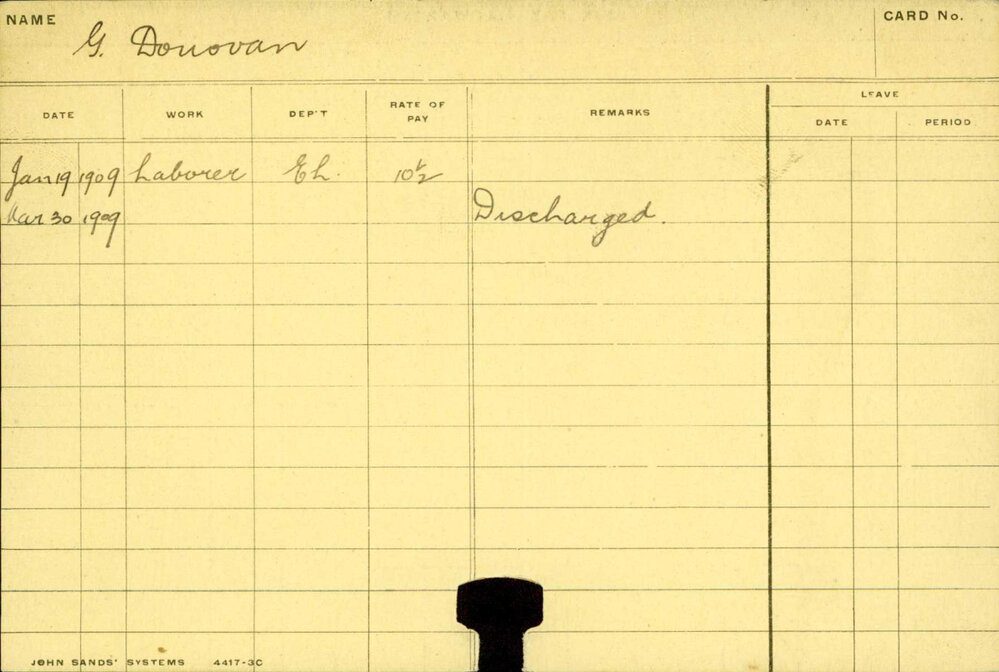 NAME G. Donovan CARD No.
DATE WORK DEP'T RATE OF PAY REMARKS LEAVE
DATE PERIOD
Jan 19 1909 Laborer Eh. 10½
Mar 30 1909 Discharged.
JOHN SANDS' SYSTEMS 4417-3C